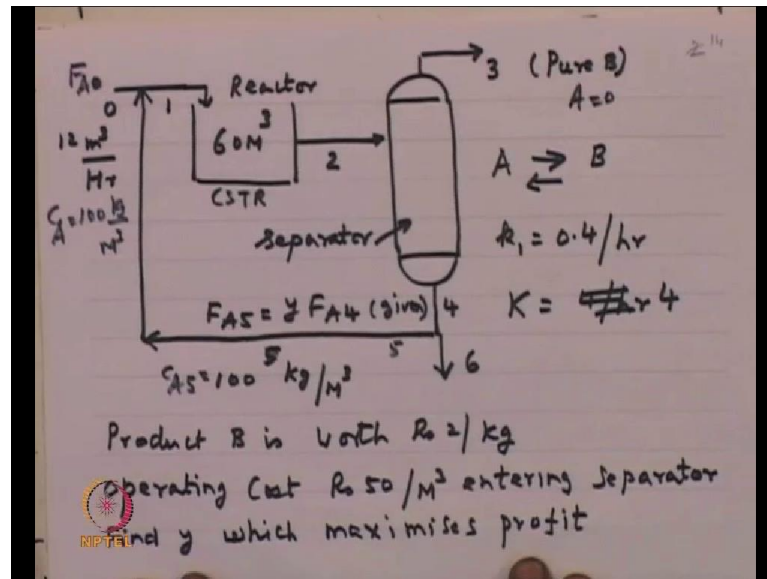 F_A0
0
1
Reactor
60M³
CSTR
2
12 m³/Hr
C_A=100 kg/M³
separator
3 (Pure B)
A=0
A ⇌ B
k₁ = 0.4/hr
K = 4
F_A5 = y F_A4 (given)
4
5
5
6
C_A5=100 kg/M³
Product B is worth Rs 2/kg
Operating Cost Rs 50/M³ entering Separator
Find y which maximises profit
NPTEL